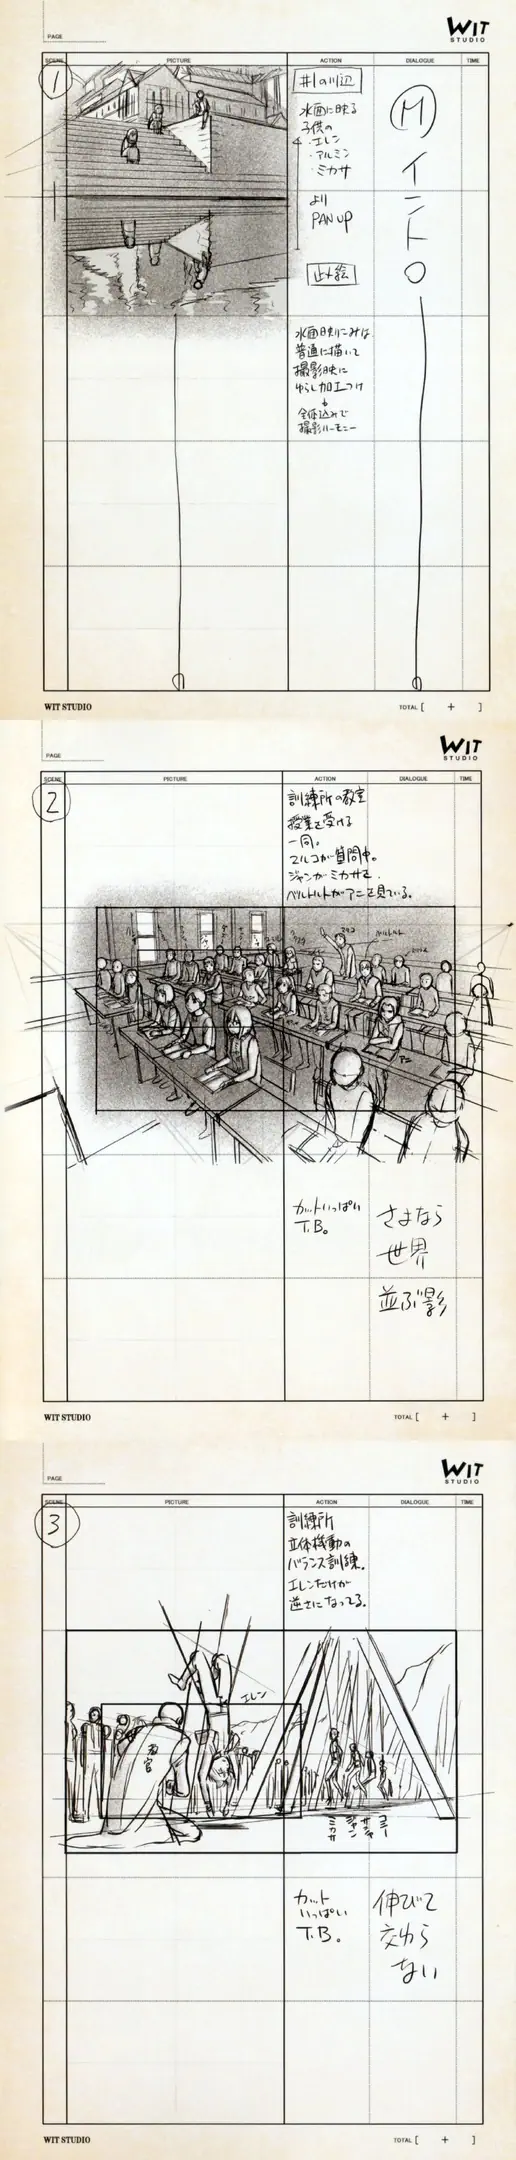 WIT
STUDIO
PAGE
SCENE PICTURE ACTION DIALOGUE TIME
1
#1の川辺
水面に映る
子供の
・エレン
・アルミン
・ミカサ
より
PAN UP
止め絵
水面映りこみは
普通に描いて
撮影時に
ゆらし加工つけ
全体込みで
撮影ハーモニー
M
イントロ
WIT STUDIO
TOTAL [ + ]
WIT
STUDIO
PAGE
SCENE PICTURE ACTION DIALOGUE TIME
2
訓練所の教室
授業を受ける
一同。
マルコが質問中。
ジャンがミカサを、
ベルトルトがアニを見ている。
マルコ
ベルトルト
アニ
カットいっぱい
T.B。
さよなら
世界
並ぶ影
WIT STUDIO
TOTAL [ + ]
WIT
STUDIO
PAGE
SCENE PICTURE ACTION DIALOGUE TIME
3
訓練所
立体機動の
バランス訓練。
エレンだけが
逆さになってる。
エレン
教官
ミカサ
ジャン
サシャ
コニー
カット
いっぱい
T.B。
伸びて
交わら
ない
WIT STUDIO
TOTAL [ + ]